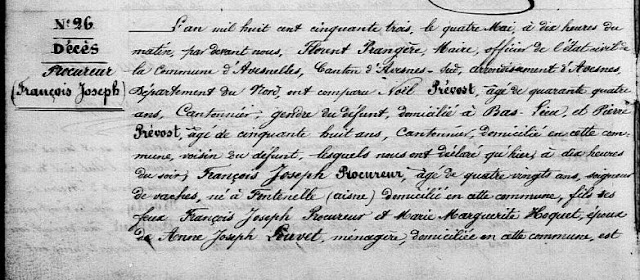 N.° 26
Décès
Procureur
(François Joseph)
L'an mil huit cent cinquante trois, le quatre Mai, à dix heures du
matin, par devant nous, Florent Prangère, Maire, officier de l'état civil de
la Commune d'Avesnelles, Canton d'Avesnes-Sud, arrondissement d'Avesnes
Département du Nord, ont comparu Noël Prévost, âgé de quarante quatre
ans, Cantonnier, gendre du défunt, domicilié à Bas-Lieu, et Pierre
Prévost, âgé de cinquante huit ans, Cantonnier, domicilié en cette com-
mune, voisin du défunt, lesquels nous ont déclaré qu'hier, à dix heures
du soir, François Joseph Procureur, âgé de quatre vingts ans, soigneur
de vaches, né à Fontenelle (aisne) domicilié en cette commune, fils des
feux François Joseph Procureur et Marie Marguerite Hoquet, époux
de Anne Joseph Louvet, ménagère, domiciliée en cette commune, est